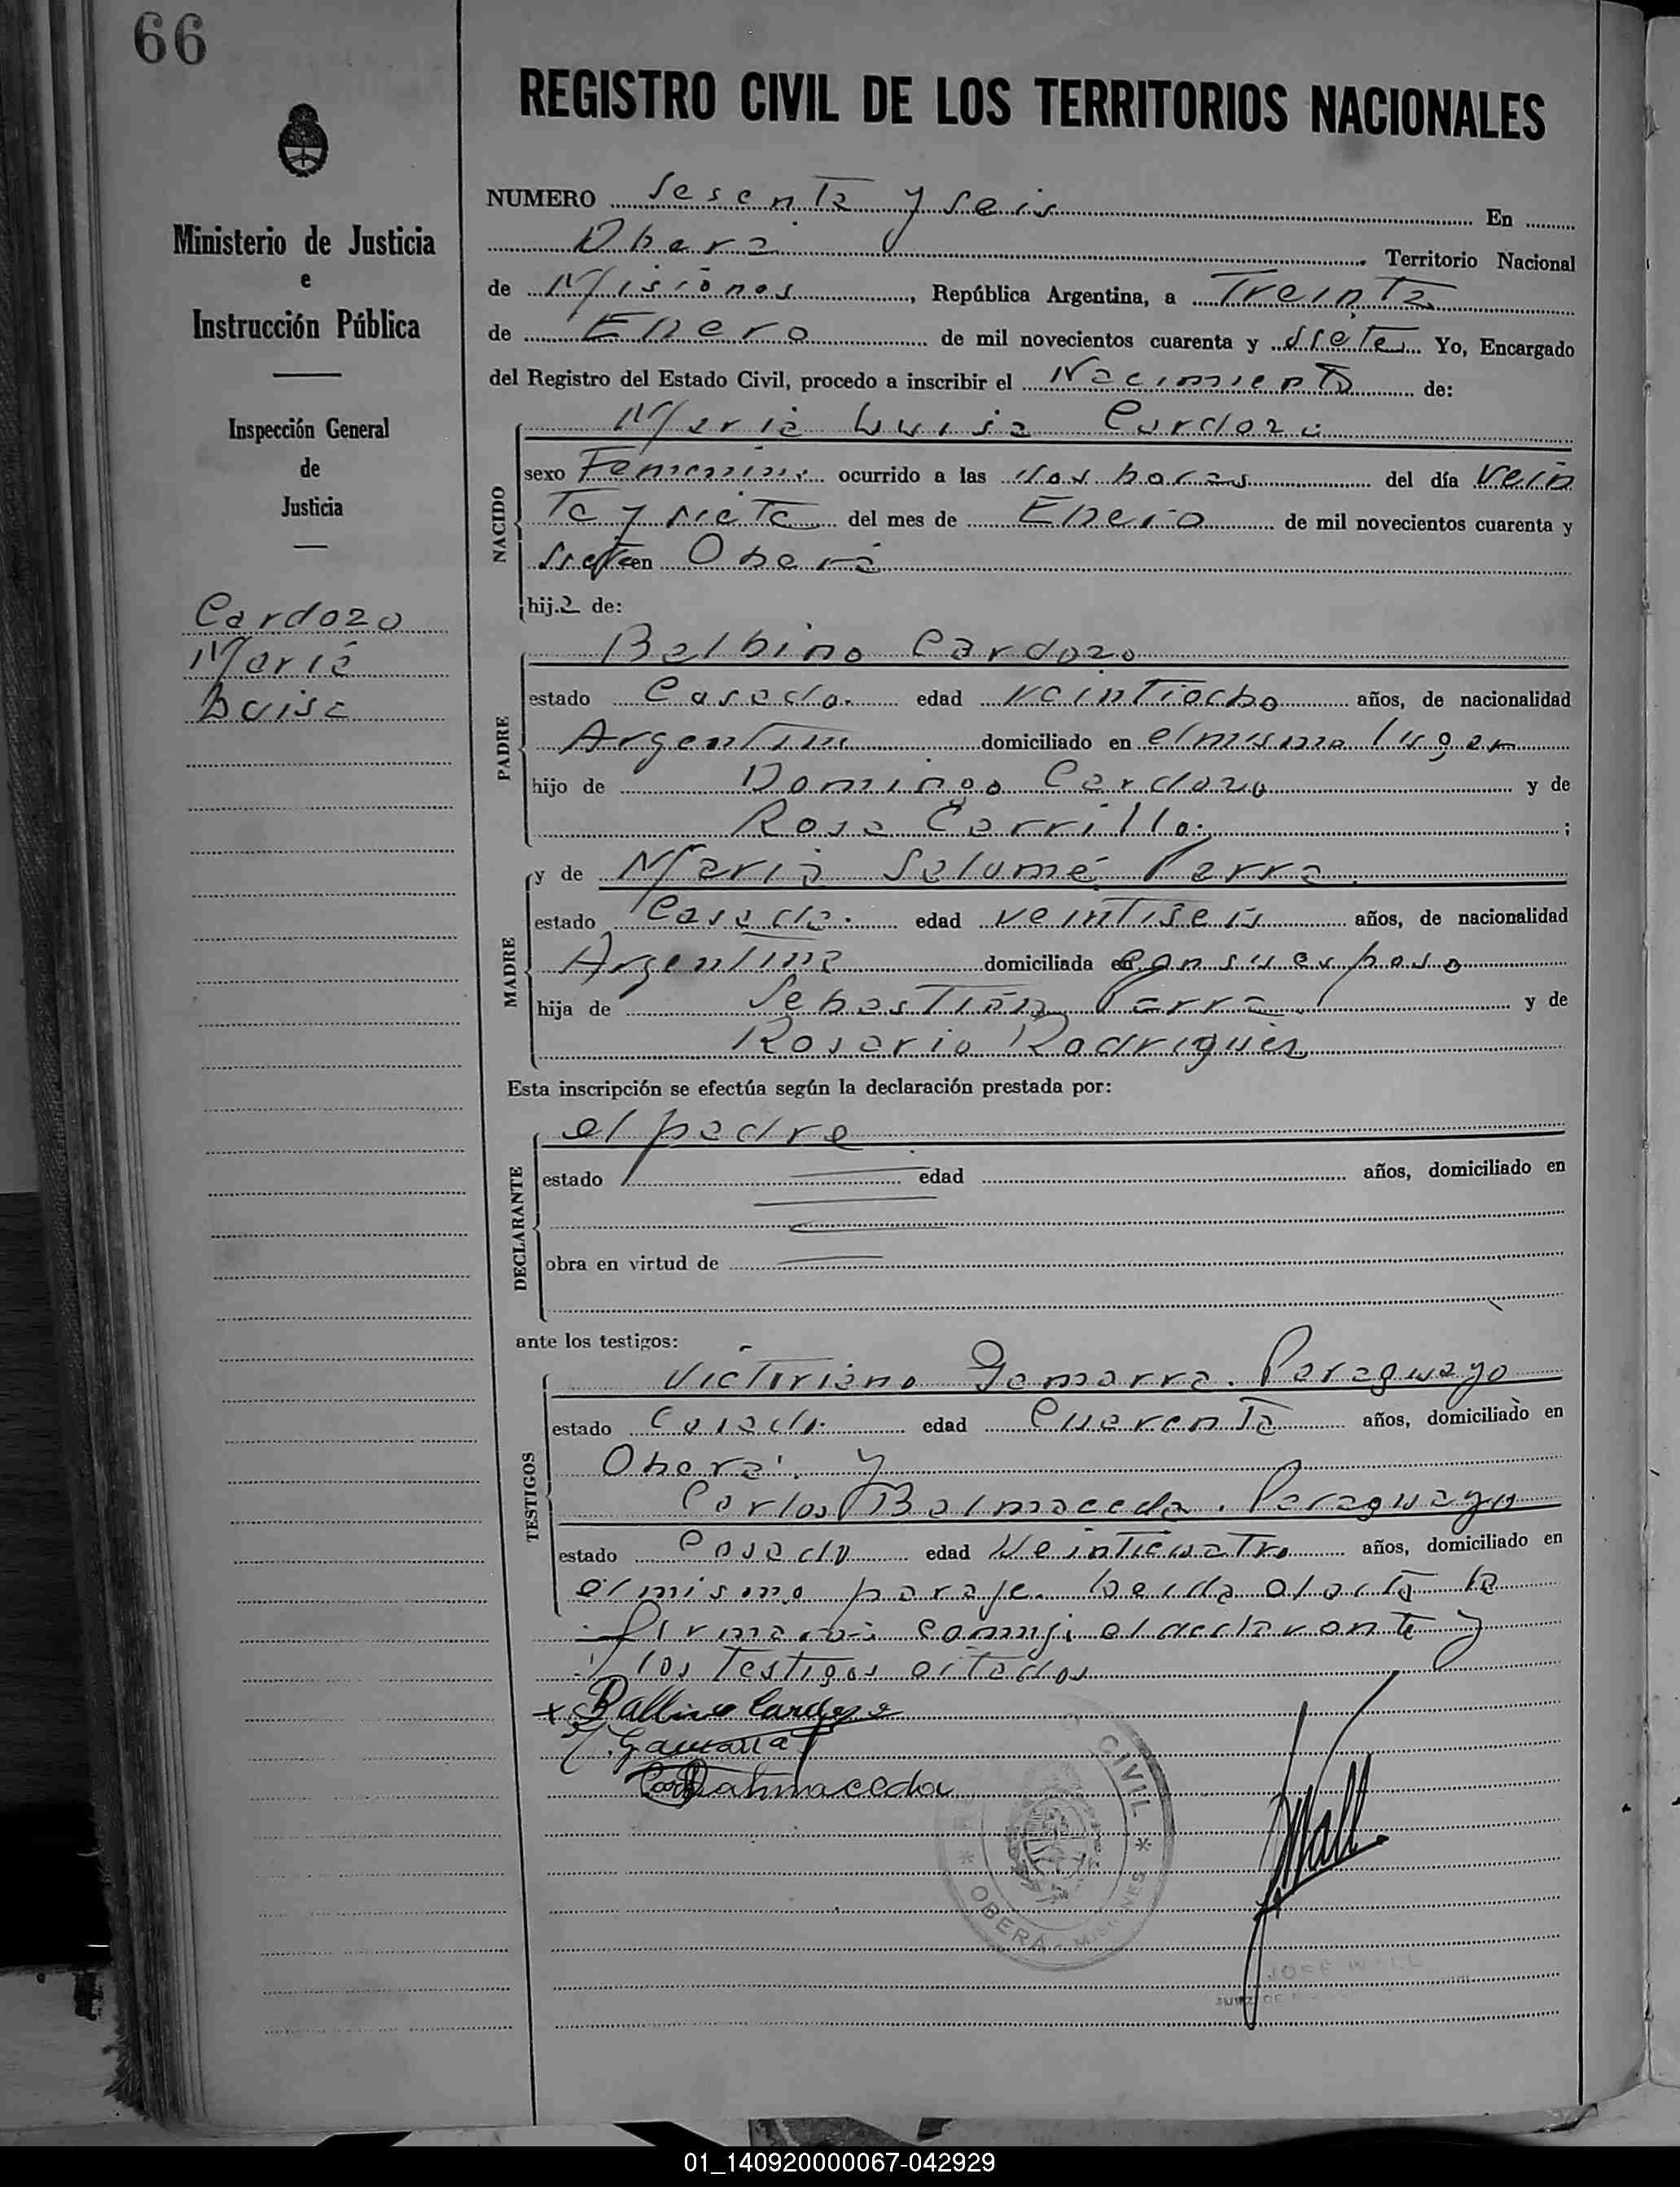 66
REGISTRO CIVIL DE LOS TERRITORIOS NACIONALES
Ministerio de Justicia
e
Instrucción Pública
Inspección General
de
Justicia
Cardozo
Maria
Luisa
NUMERO Sesenta y seis En
Oberá Territorio Nacional
de Misiones, República Argentina, a Treinta
de Enero de mil novecientos cuarenta y siete Yo, Encargado
del Registro del Estado Civil, procedo a inscribir el Nacimiento de:
NACIDO
Maria Luisa Cardozo
sexo Femenino ocurrido a las dos horas del día Vein
te y siete del mes de Enero de mil novecientos cuarenta y
siete en Oberá
hija de:
PADRE
Balbino Cardozo
estado Casado. edad veintiocho años, de nacionalidad
Argentino domiciliado en el mismo lugar
hijo de Domingo Cardozo y de
Rosa Carrillo. ;
MADRE
y de Maria Salomé Parra.
estado Casada. edad veintiseis años, de nacionalidad
Argentina domiciliada en con su esposo
hija de Sebastián Parra y de
Rosario Rodrigues
Esta inscripción se efectúa según la declaración prestada por:
DECLARANTE
el padre
estado edad años, domiciliado en
obra en virtud de
ante los testigos:
TESTIGOS
Victoriano Gamarra. Paraguayo
estado Casado. edad Cuarenta años, domiciliado en
Oberá. y
Carlos Balmaceda. Paraguayo
estado Casado edad Veinticuatro años, domiciliado en
el mismo paraje. Leida el acta la
firmaron conmigo el declarante y
los Testigos citados
Balbino Cardozo
V. Gamarra
Carlos Balmaceda
CIVIL
OBERÁ - MISIONES
JWall
JOSE WALL
JUEZ DE
01_140920000067-042929